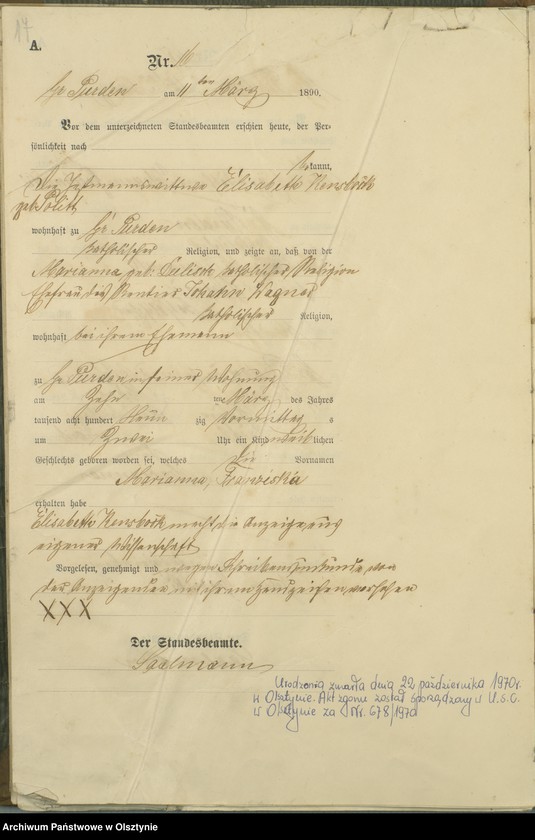 17
A.
Nr. 16
Gr Purden am 11 ten März 1890.
Vor dem unterzeichneten Standesbeamten erschien heute, der Per-
sönlichkeit nach
bekannt,
Die Elisabeth
geb.
wohnhaft zu Gr Purden
katholischer Religion, und zeigte an, daß von der
Marianna geb. katholischer Religion
Ehefrau des Rentier Johann Wagner
katholischer Religion,
wohnhaft bei ihrem Ehemann
zu Gr Purden in seiner Wohnung
am Zehn ten März des Jahres
tausend acht hundert Neun zig Vormittag s
um Zwei Uhr ein Kind weiblichen
Geschlechts geboren worden sei, welches die Vornamen
Marianna, Franziska
erhalten habe
Elisabeth macht die Anzeige aus
eigener Wissenschaft
Vorgelesen, genehmigt und wegen Schreibensunkunde von
der Anzeigenden mit ihrem Handzeichen versehen
XXX
Der Standesbeamte.
Saalmann
Urodzona zmarła dnia 22 października 1970r.
w Olsztynie. Akt zgonu został sporządzony w U.S.C.
w Olsztynie za Nr. 678/1970
Archiwum Państwowe w Olsztynie